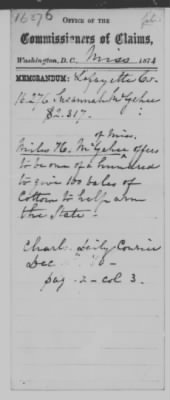 16276
OFFICE OF THE
Commissioners of Claims,
Washington, D.C., Miss 1874
MEMORANDUM: Lafayette Co.
16.276 Susannah McGehee
$2.317.
of Miss.
Miles H. McGehee offers
to be one of a hundred
to give 100 bales of
Cotton to help arm
the State –
Charls. Daily Courier
Dec 60 –
pag – 2 – col 3.